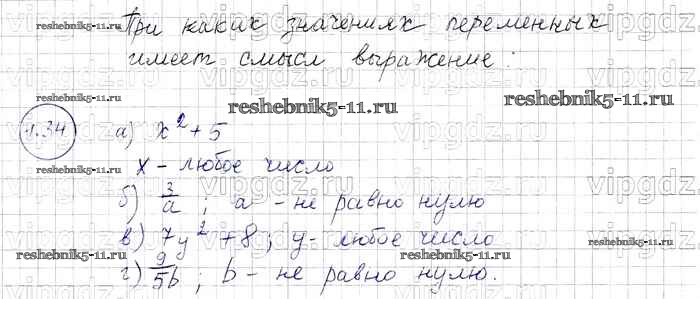 При каких значениях переменных
имеет смысл выражение:
1.34 а) x² + 5
x - любое число
б) 3/a ; a - не равно нулю
в) 7y² + 8 ; y - любое число
г) 9/5b ; b - не равно нулю.
reshebnik5-11.ru
reshebnik5-11.ru
reshebnik5-11.ru
reshebnik5-11.ru
reshebnik5-11.ru
reshebnik5-11.ru
reshebnik5-11.ru
reshebnik5-11.ru
vipgdz.ru